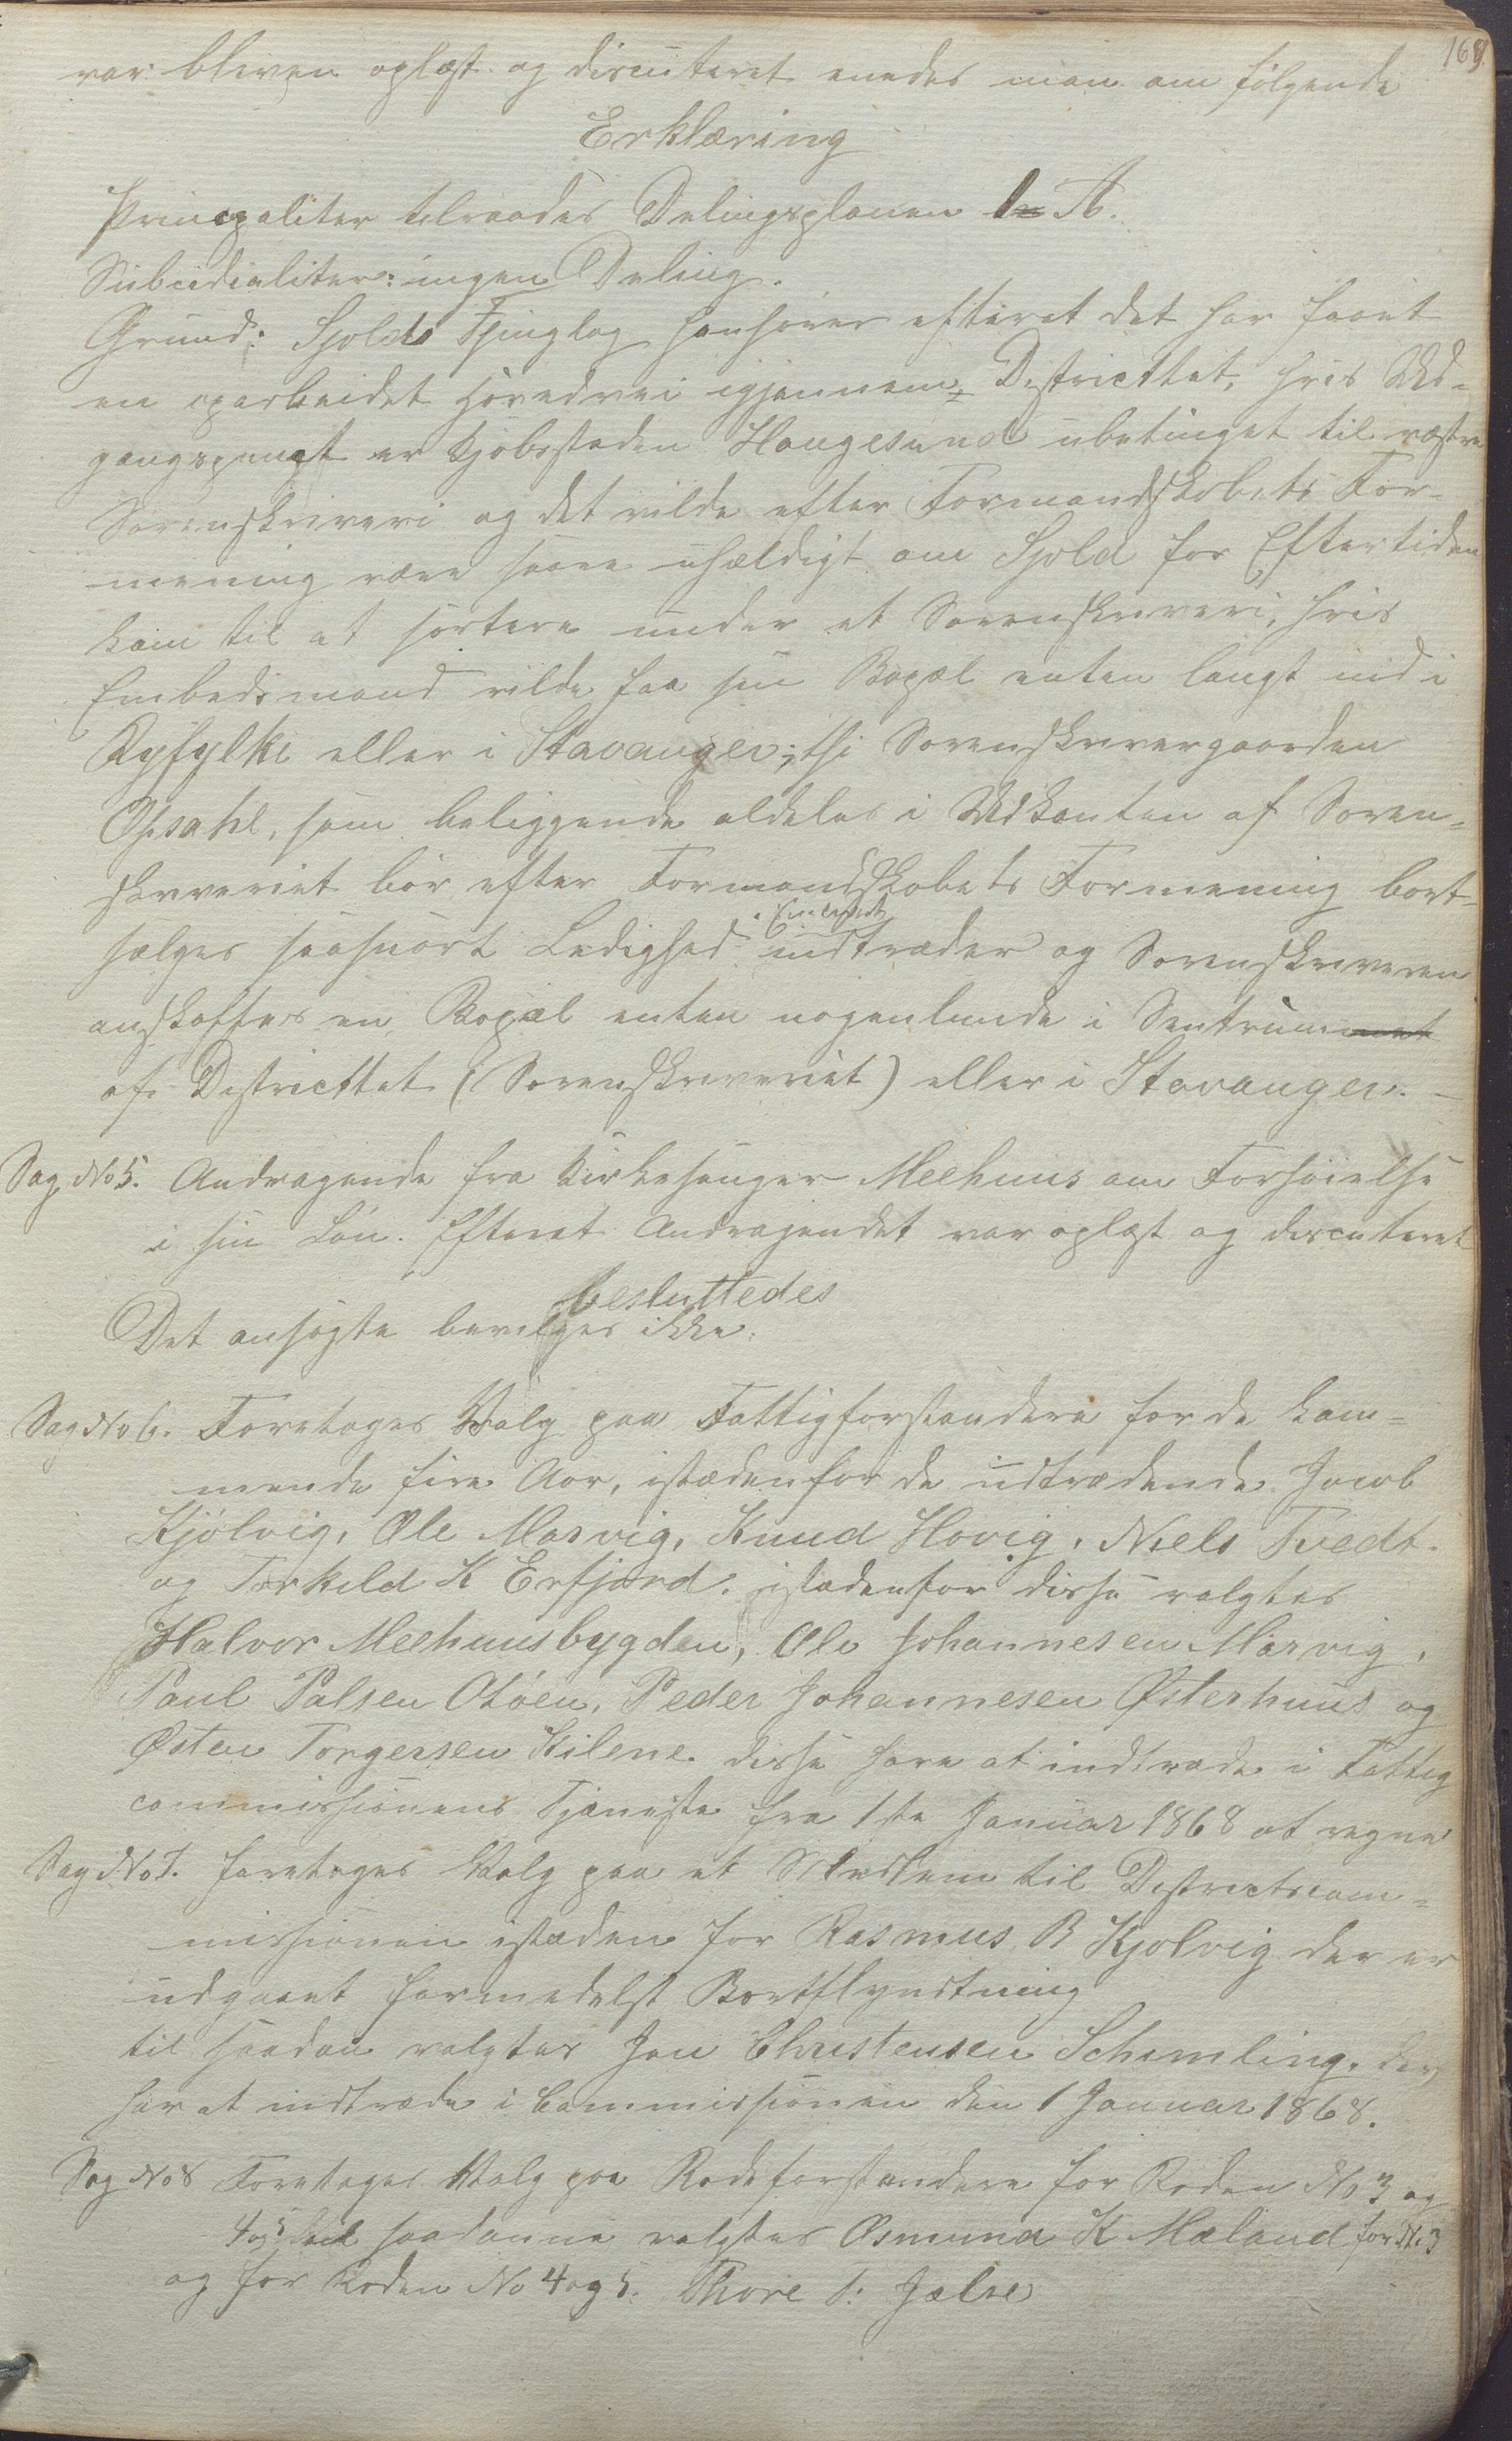 169.
var bleven oplæst og discuteret enedes man om følgende
Erklæring
Principaliter tilraades Delingsplanen A.
Subsidialiter: ingen Deling.
Grund: Sjolds Thinglag henhører efteret det har faaet
en oparbeidet Hovedvei igjennem Districttet, hvis Ud-
gangspunct er Kjøbstaden Haugesund ubetinget til vestre
Sorenskriveri og det vilde efter Formandskabets For-
mening være saare uheldigt om Sjold for Eftertiden
kom til at sortere under et Sorenskriveri, hvis
Embedsmand vilde faa sin Bopæl enten langt ind i
Ryfylke eller i Stavanger; thi Sorenskrivergaarden
Opsahl, som beliggende aldeles i Udkanten af Soren-
skriveriet bør efter Formandskabets Formening bort-
sælges saasnart Ledighed i Embedet indtræder og Sorenskriveren
anskaffes en Bopæl enten nogenlunde i Sentrum
af Districttet (Sorenskriveriet) eller i Stavanger. -
Sag No 5. Andragende fra Kirkesanger Meehuus om Forhøielse
i sin Løn. Efteret Andragendet var oplæst og discuteret
besluttedes
Det ansøgte bevilges ikke.
Sag No 6. Foretoges Valg paa Fattigforstandere for de kom-
mende fire Aar, istædenfor de udtrædende Jacob
Kjølvig, Ole Marvig, Knud Hovig, Niels Tvedt
og Torkild K Erfjord. istædenfor disse valgtes
Halvor Meehuusbygden, Ole Johannesen Marvig,
Paul Palsen Otøen, Peder Johannesen Østerhuus og
Østen Torgersen Kilene. disse have at indtræde i Fattig
commissionens Tjeneste fra 1ste Januar 1868 at regne
Sag No 7. foretoges Valg paa et Medlem til Districtscom-
missionen istæden for Rasmus B Kjølvig der er
udgaaet formedelst Bortflyndtning
til saadan valgtes Jon Christensen Schimling. der
har at indtræde i Commissionen den 1 Januar 1868.
Sag No 8 Foretoges Valg paa Rodeforstandere for Roden No 3 og
4 og 5 saadanne valgtes Osmund K Mæland for No 3
og for Roden No 4 og 5. Thore T: Jælse